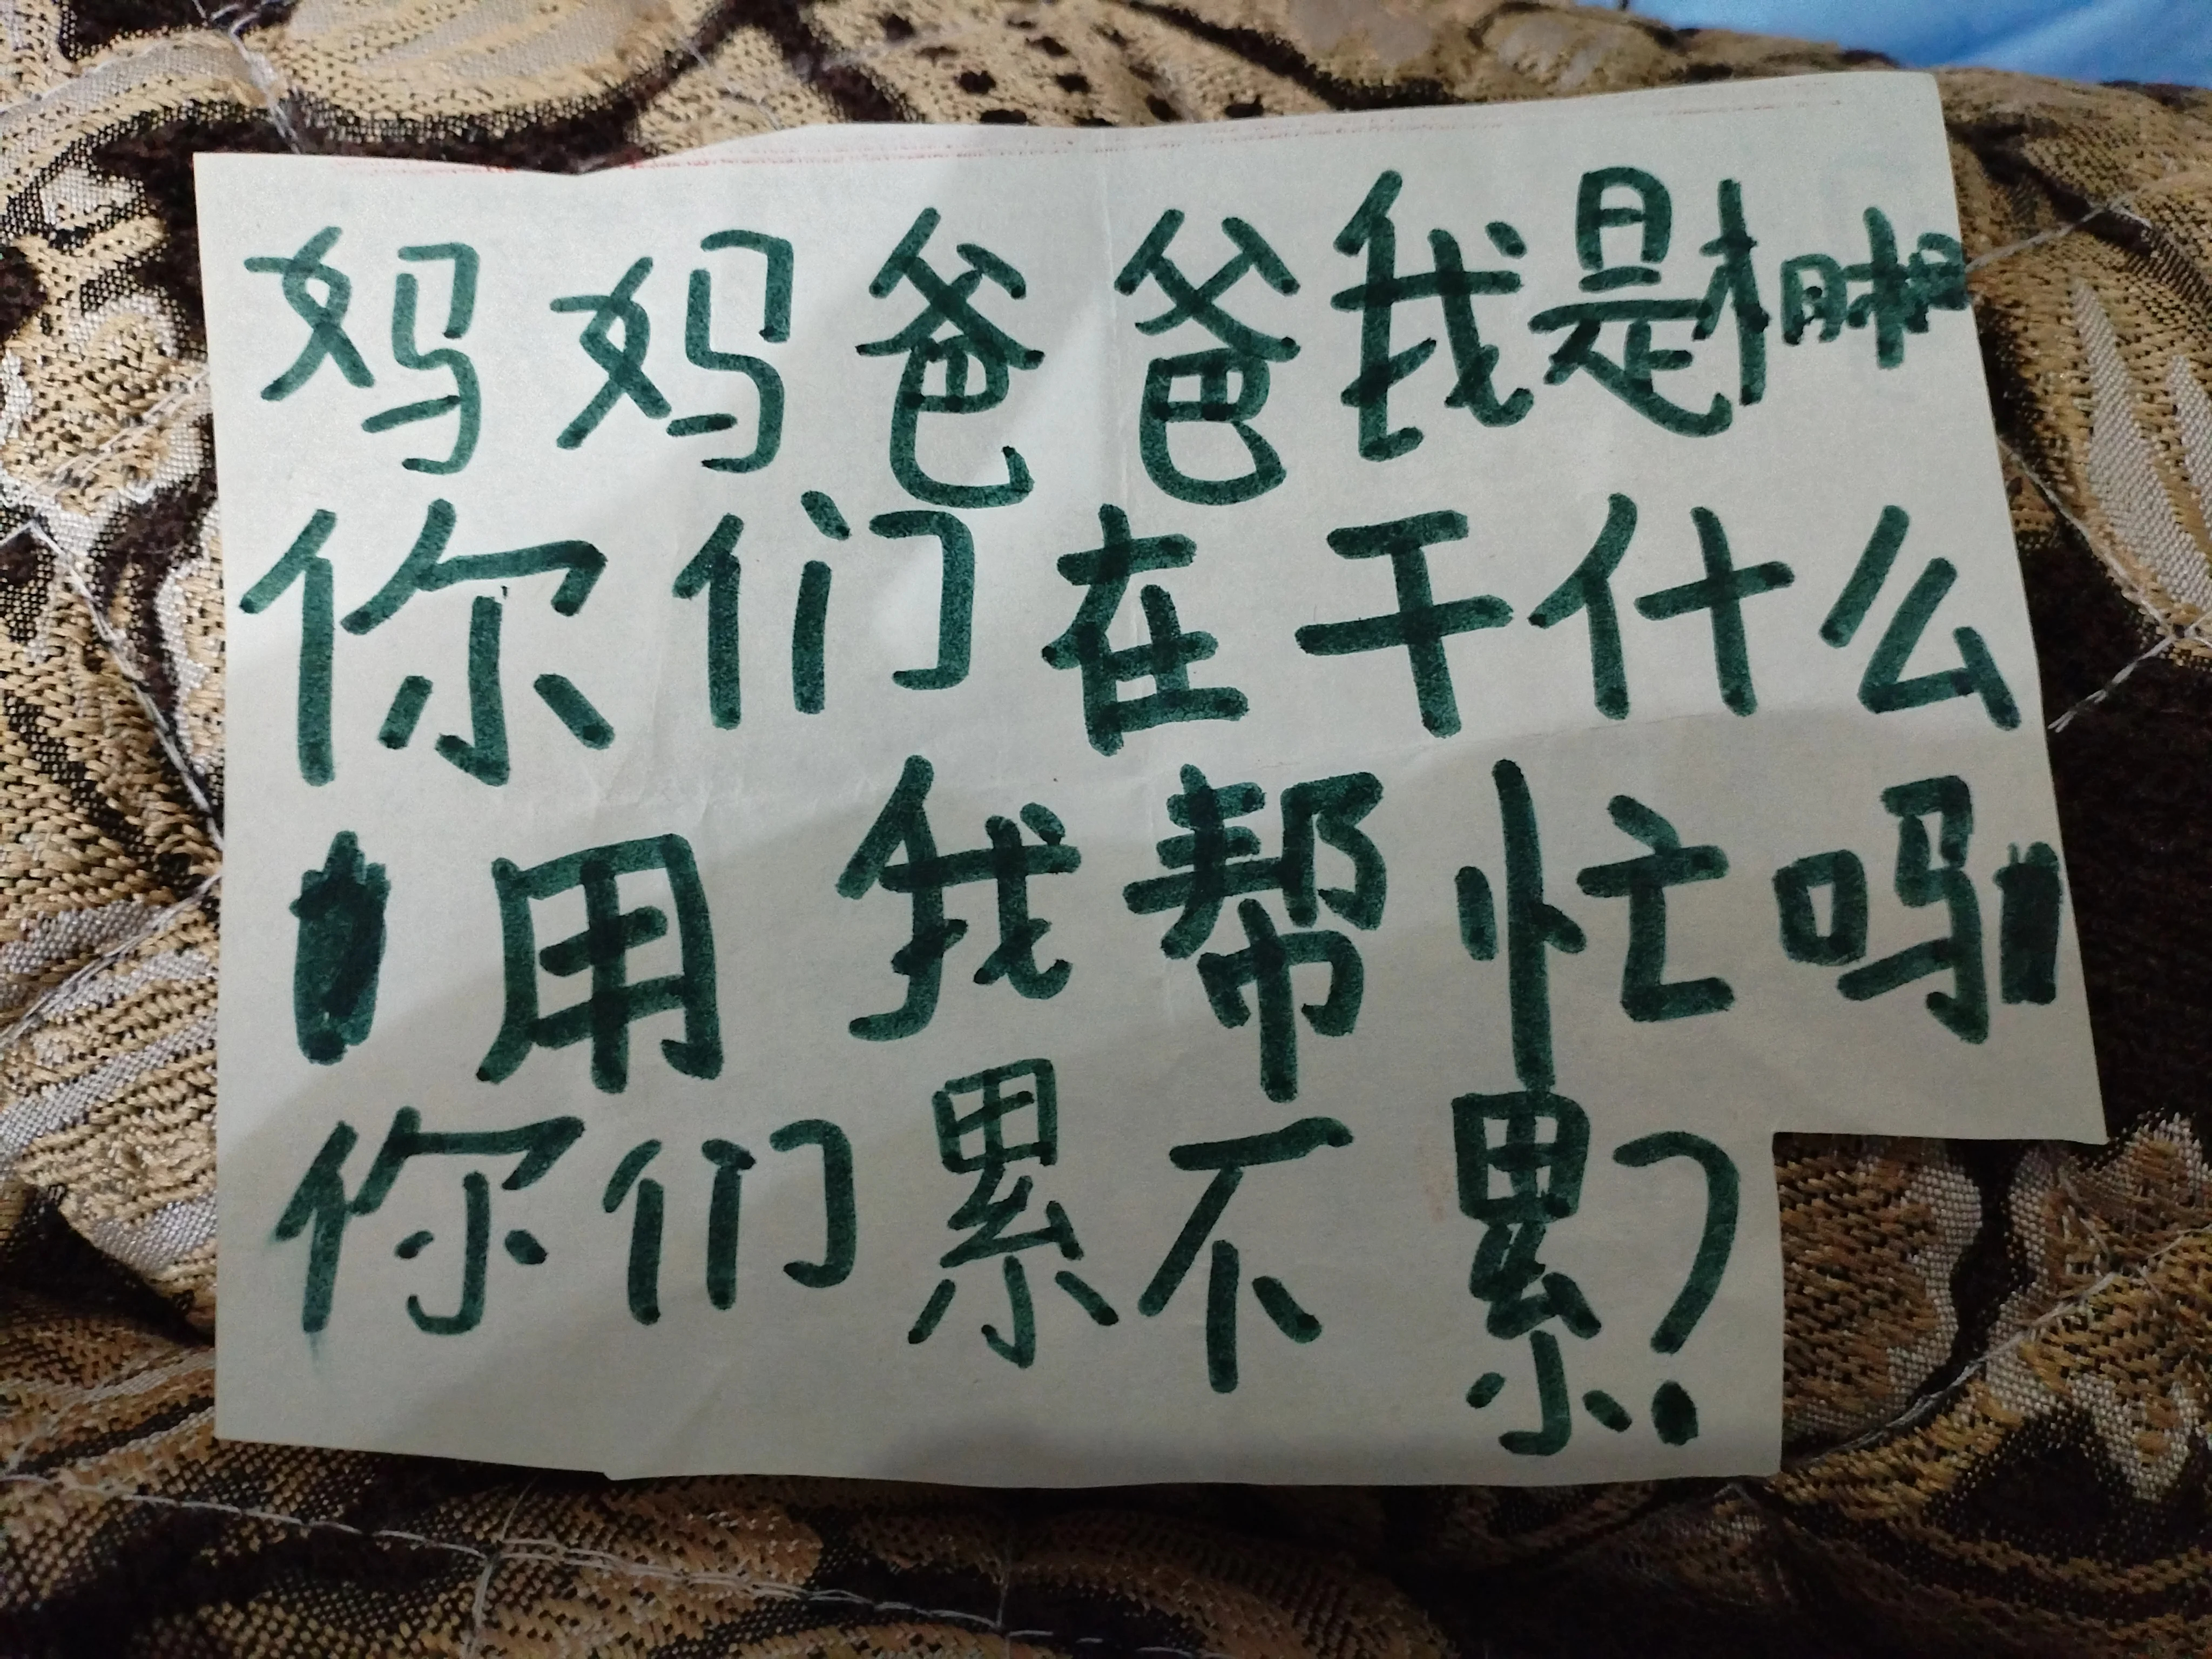 妈妈爸爸我是
你们在干什么
用我帮忙吗
你们累不累?